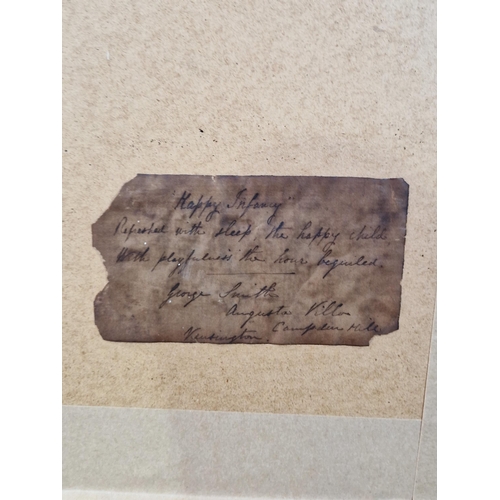 "Happy Infancy"
Refreshed with sleep the happy child
With playfulness the hour beguiled.
George Smith
Augusta Villa
Kensington. Campden Hill